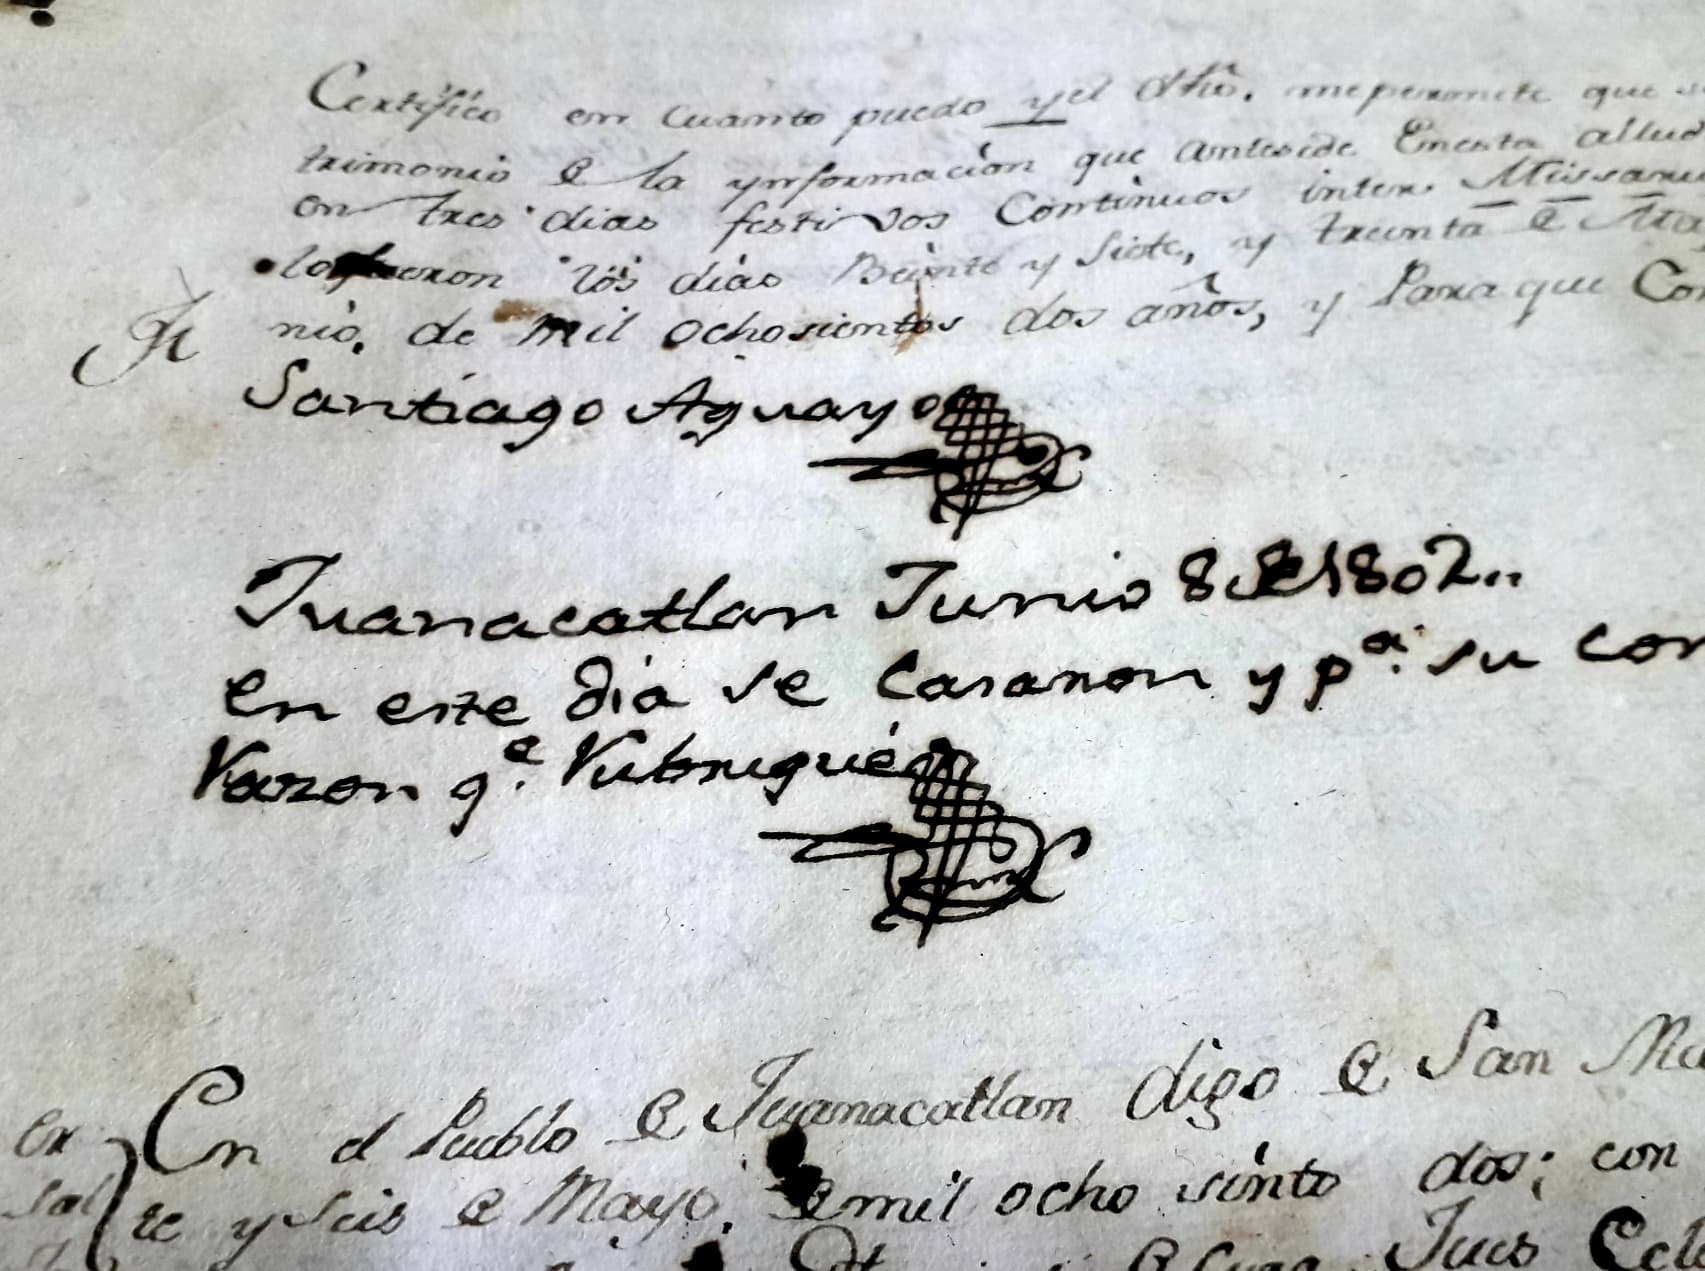 Certifico en Cuanto puedo y el dho. mepermite que se
trimonio e la ynformacion que anteside Enesta
en tres dias festivos Continuos inter. Missarum
los dias Beinte y Siete, y treinta e
nio, de mil ochosientos dos años, y Para que Con
Santiago Aguayo
Juanacatlan Junio 8 de 1802..
en este dia se Casaron y pª. su con
Razon qe. Rubriqué
En el Pueblo e Juanacatlan digo e San Ma
te y seis e Mayo. e mil ocho sinto dos; con
Jues